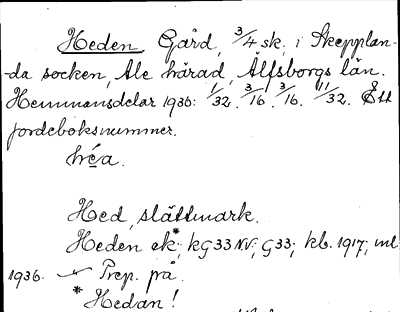 Heden Gård, 3/4 sk, i Skepplan-
-da socken, Ale härad, Älfsborgs län.
Hemmansdelar 1936: 1/32. 3/16. 3/16. 11/32. Ett
jordeboksnummer.
hẹ́a.
Hed, slättmark.
Heden ek*, kG33NV; G33; kb. 1917; ml
1936. Prep. på.
* Hedan!